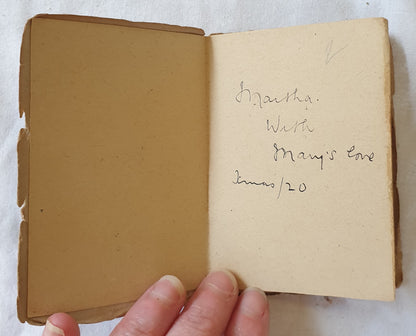 Martha.
With
Mary's love
Xmas/20